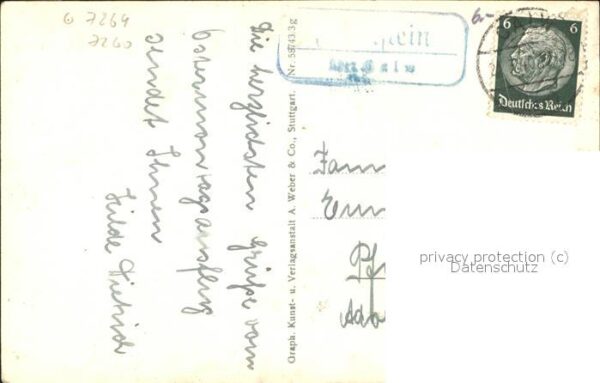 G 7264
7260
Die herzlichsten Grüße vom
Ostermontagausflug
sendet Ihnen
Hilde Dietrich
Graph. Kunst- u. Verlagsanstalt A. Weber & Co., Stuttgart. Nr. 59743.3g
6.-
6 6
Deutsches Reich
Fam
Em
Pf
Ado
privacy protection (c)
Datenschutz